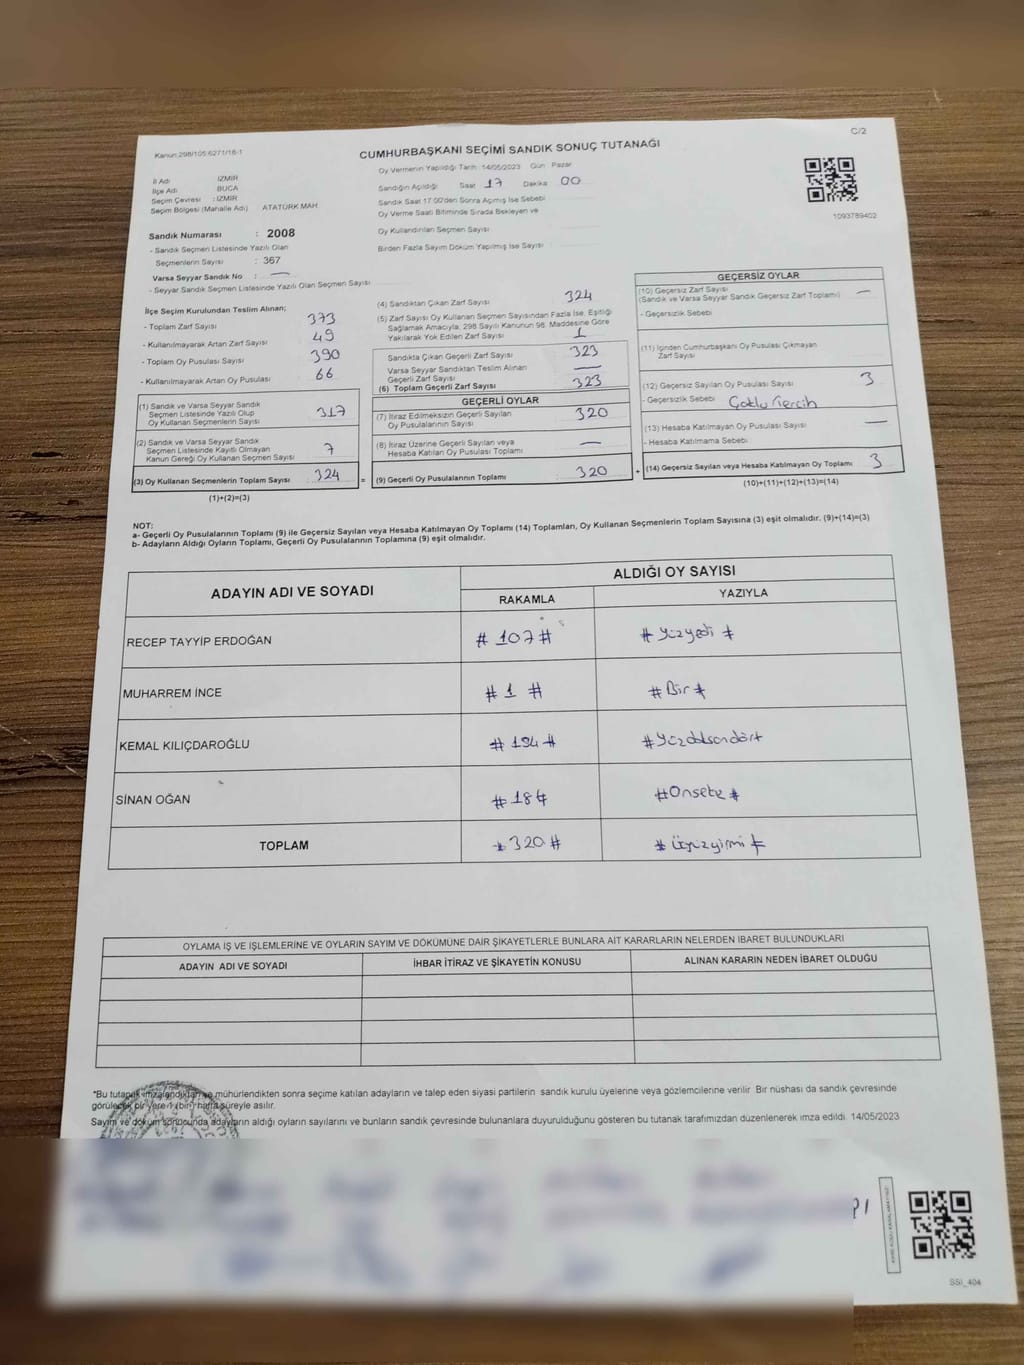 C/2
Kanun 298/105 6271/18-1
CUMHURBAŞKANI SEÇİMİ SANDIK SONUÇ TUTANAĞI
Oy Vermenin Yapıldığı Tarih 14/05/2023 Gün Pazar
Sandığın Açıldığı Saat 17 Dakika 00
Sandık Saat 17:00'den Sonra Açmış İse Sebebi
Oy Verme Saati Bitiminde Sırada Bekleyen ve
Oy Kullandırılan Seçmen Sayısı
Birden Fazla Sayım Döküm Yapılmış İse Sayısı
1093789402
İl Adı : İZMİR
İlçe Adı : BUCA
Seçim Çevresi : İZMİR
Seçim Bölgesi (Mahalle Adı) ATATÜRK MAH.
Sandık Numarası : 2008
- Sandık Seçmen Listesinde Yazılı Olan
Seçmenlerin Sayısı : 367
Varsa Seyyar Sandık No : —
- Seyyar Sandık Seçmen Listesinde Yazılı Olan Seçmen Sayısı
İlçe Seçim Kurulundan Teslim Alınan;
- Toplam Zarf Sayısı 373
- Kullanılmayarak Artan Zarf Sayısı 49
- Toplam Oy Pusulası Sayısı 390
- Kullanılmayarak Artan Oy Pusulası 66
(1) Sandık ve Varsa Seyyar Sandık
Seçmen Listesinde Yazılı Olup
Oy Kullanan Seçmenlerin Sayısı 317
(2) Sandık ve Varsa Seyyar Sandık
Seçmen Listesinde Kayıtlı Olmayan
Kanun Gereği Oy Kullanan Seçmen Sayısı 7
(3) Oy Kullanan Seçmenlerin Toplam Sayısı 324 =
(1)+(2)=(3)
(4) Sandıktan Çıkan Zarf Sayısı 324
(5) Zarf Sayısı Oy Kullanan Seçmen Sayısından Fazla İse, Eşitliği
Sağlamak Amacıyla, 298 Sayılı Kanunun 98. Maddesine Göre
Yakılarak Yok Edilen Zarf Sayısı 1
Sandıkta Çıkan Geçerli Zarf Sayısı 323
Varsa Seyyar Sandıktan Teslim Alınan
Geçerli Zarf Sayısı —
(6) Toplam Geçerli Zarf Sayısı 323
GEÇERLİ OYLAR
(7) İtiraz Edilmeksizin Geçerli Sayılan
Oy Pusulalarının Sayısı 320
(8) İtiraz Üzerine Geçerli Sayılan veya
Hesaba Katılan Oy Pusulası Toplamı —
(9) Geçerli Oy Pusulalarının Toplamı 320 +
GEÇERSİZ OYLAR
(10) Geçersiz Zarf Sayısı —
(Sandık ve Varsa Seyyar Sandık Geçersiz Zarf Toplamı)
- Geçersizlik Sebebi
(11) İçinden Cumhurbaşkanı Oy Pusulası Çıkmayan
Zarf Sayısı
(12) Geçersiz Sayılan Oy Pusulası Sayısı 3
- Geçersizlik Sebebi Çoklu Tercih
(13) Hesaba Katılmayan Oy Pusulası Sayısı —
- Hesaba Katılmama Sebebi
(14) Geçersiz Sayılan veya Hesaba Katılmayan Oy Toplamı 3
(10)+(11)+(12)+(13)=(14)
NOT:
a- Geçerli Oy Pusulalarının Toplamı (9) ile Geçersiz Sayılan veya Hesaba Katılmayan Oy Toplamı (14) Toplamları, Oy Kullanan Seçmenlerin Toplam Sayısına (3) eşit olmalıdır. (9)+(14)=(3)
b- Adayların Aldığı Oyların Toplamı, Geçerli Oy Pusulalarının Toplamına (9) eşit olmalıdır.
ADAYIN ADI VE SOYADI
ALDIĞI OY SAYISI
RAKAMLA YAZIYLA
RECEP TAYYİP ERDOĞAN # 107 # # Yüzyedi #
MUHARREM İNCE # 1 # # Bir #
KEMAL KILIÇDAROĞLU # 194 # # Yüzdoksandört
SİNAN OĞAN #Onsekiz #
TOPLAM # 320 # # üçyüzyirmi #
OYLAMA İŞ VE İŞLEMLERİNE VE OYLARIN SAYIM VE DÖKÜMÜNE DAİR ŞİKAYETLERLE BUNLARA AİT KARARLARIN NELERDEN İBARET BULUNDUKLARI
ADAYIN ADI VE SOYADI İHBAR İTİRAZ VE ŞİKAYETİN KONUSU ALINAN KARARIN NEDEN İBARET OLDUĞU
*Bu tutanak imzalandıktan ve mühürlendikten sonra seçime katılan adayların ve talep eden siyasi partilerin sandık kurulu üyelerine veya gözlemcilerine verilir. Bir nüshası da sandık çevresinde
görülecek bir yere 1 (bir) hafta süreyle asılır.
Sayım ve döküm sonucunda adayların aldığı oyların sayılarını ve bunların sandık çevresinde bulunanlara duyurulduğunu gösteren bu tutanak tarafımızdan düzenlenerek imza edildi. 14/05/2023
SSI_404